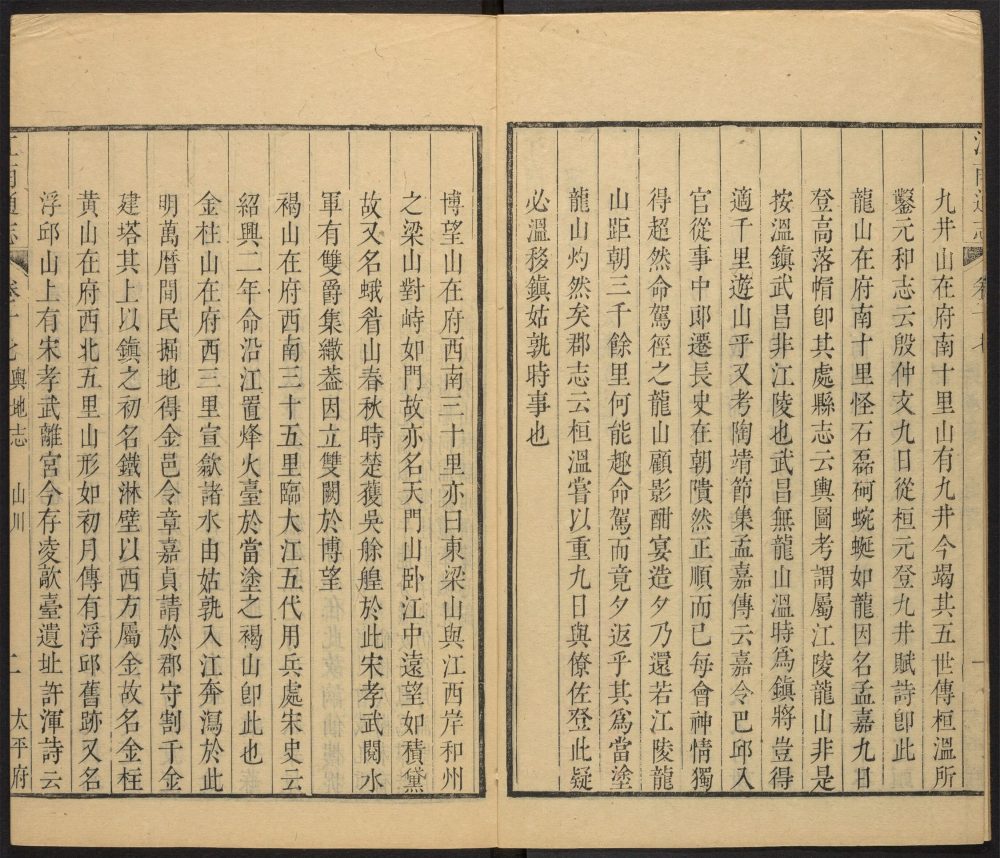 九井山在府南十里山有九井今竭其五世傳桓溫所
鑿元和志云殷仲文九日從桓元登九井賦詩卽此
龍山在府南十里怪石磊砢蜿蜒如龍因名孟嘉九日
登高落帽卽其處縣志云輿圖考謂屬江陵龍山非是
按溫鎭武昌非江陵也武昌無龍山溫時爲鎭將豈得
適千里遊山乎又考陶靖節集孟嘉傳云嘉令巴邱入
官從事中郞遷長史在朝隤然正順而已每會神情獨
得超然命駕徑之龍山顧影酣宴造夕乃還若江陵龍
山距朝三千餘里何能趣命駕而竟夕返乎其爲當塗
龍山灼然矣郡志云桓溫嘗以重九日與僚佐登此疑
必溫移鎭姑孰時事也
博望山在府西南三十里亦曰東梁山與江西岸和州
之梁山對峙如門故亦名天門山卧江中遠望如積黛
故又名蛾眉山春秋時楚獲吳艅艎於此宋孝武閱水
軍有雙爵集繖葢因立雙闕於博望
褐山在府西南三十五里臨大江五代用兵處宋史云
紹興二年命沿江置烽火臺於當塗之褐山卽此也
金柱山在府西三里宣歙諸水由姑孰入江奔瀉於此
明萬曆間民掘地得金邑令章嘉貞請於郡守割于金
建塔其上以鎭之初名鐵淋壁以西方屬金故名金柱
黃山在府西北五里山形如初月傳有浮邱舊跡又名
浮邱山上有宋孝武離宮今存凌歊臺遺址許渾詩云
江南通志 卷十七 輿地志 山川 二 太平府